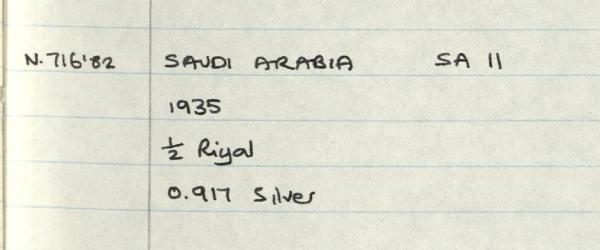 N.716'82 SAUDI ARABIA SA 11
1935
½ Riyal
0.917 Silver